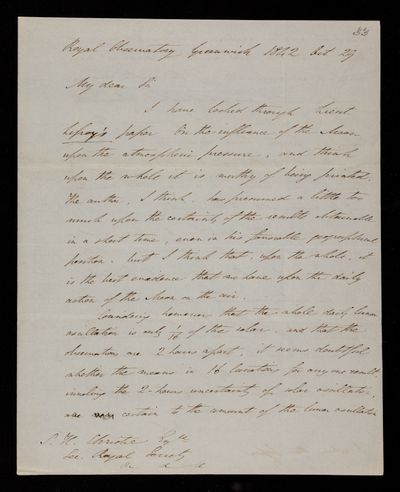 Royal Observatory Greenwich 1842 Oct 29
My dear Sir
I have looked through Lieut
Lefroy's paper On the influence of the Moon
upon the atmospheric pressure, and think
upon the whole it is worthy of being printed.
The author, I think, has presumed a little too
much upon the certainty of the results obtainable
in a short time, even in his favorable geographical
position. But I think that, upon the whole, it
is the best evidence that we have upon the daily
action of the Moon on the air.
Considering however that the whole daily lunar
oscillation is only of the solar, and that the
observations are 2 hours apart, it seems doubtful
whether the means in 16 lunations for any one result
involving the 2-hours uncertainty of solar oscillation,
are certain to the amount of the lunar oscillation
S. H. Christie Esqre
Sec. Royal Society